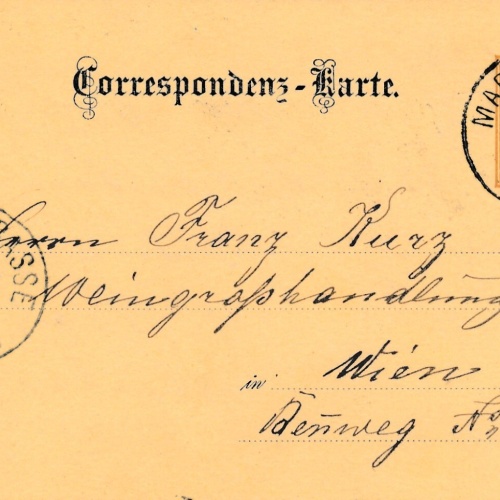 Correspondenz-Karte.
MA
Herrn Franz Kurz
GASSE
Weingroßhandlung
in Wien
Rennweg No